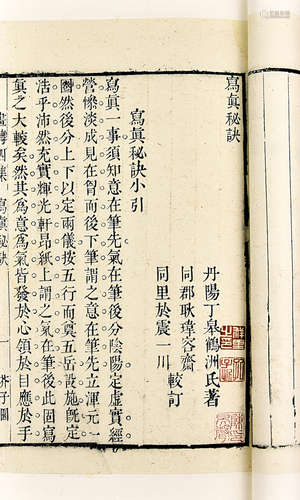 寫眞秘訣
丹陽丁皋鶴洲氏著
同郡耿瑋容齋
同里於震一川
較訂
寫眞秘訣小引
寫眞一事須知意在筆先氣在筆後分陰陽定虛實經
營慘淡成見在胷而後下筆謂之意在筆先立渾元一
圈然後分上下以定兩儀按五行而奠五岳設施旣定
浩乎沛然充實輝光軒昂紙上謂之氣在筆後此固寫
眞之大較矣然其爲意爲氣皆發於心領於目應於手
寫眞秘訣
芥子園